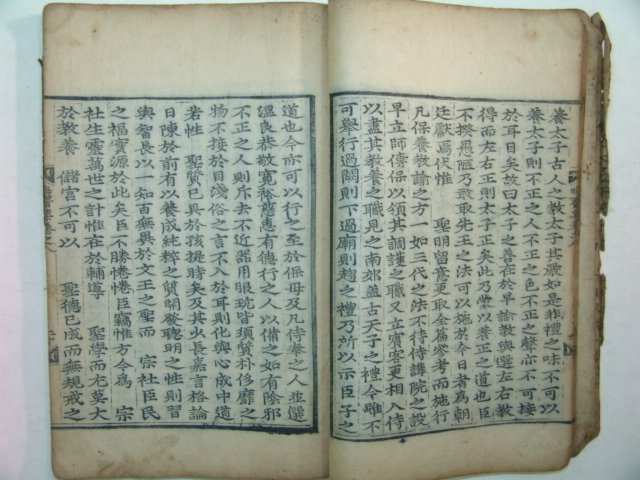 養太子古人之教太子其嚴如是非禮之味不可以
養太子則不正之人不正之色不正之聲不可接
於耳目矣故曰太子之善在於早諭教與選左右教
得而左右正則太子正矣此乃蒙以養正之道也臣
不揆愚陋乃敢取先王之法可以施於今日者爲朝
廷獻焉伏惟 聖明留意更取全篇參考而施行
凡保養教諭之方一如三代之法不待侍講院之設
早立師傅保以領其調護之職又立賓客更相入侍
以盡其教養之職見之南郊盖古天子之禮今雖不
可舉行過闕則下過廟則趨之禮乃所以示臣子之
道也今亦可以行之至於保母及凡侍奉之人並選
溫良恭敬寬裕慈惠有德行之人以備之如有陰邪
不正之人則斥去不近器用服玩皆須質朴侈靡之
物不接於目淺俗之言不入於耳則化與心成中道
若性 聖質已異於孩提時矣及其少長嘉言格論
日陳於前有以養成純粹之質開發聰明之性則習
與智長以一知百無異於文王之聖而 宗社臣民
之福實源於此矣臣不勝惓惓臣竊惟方今爲 宗
社生靈萬世之計惟在於輔導 聖學而尤莫大
於教養 儲宮不可以 聖德已成而無規戒之